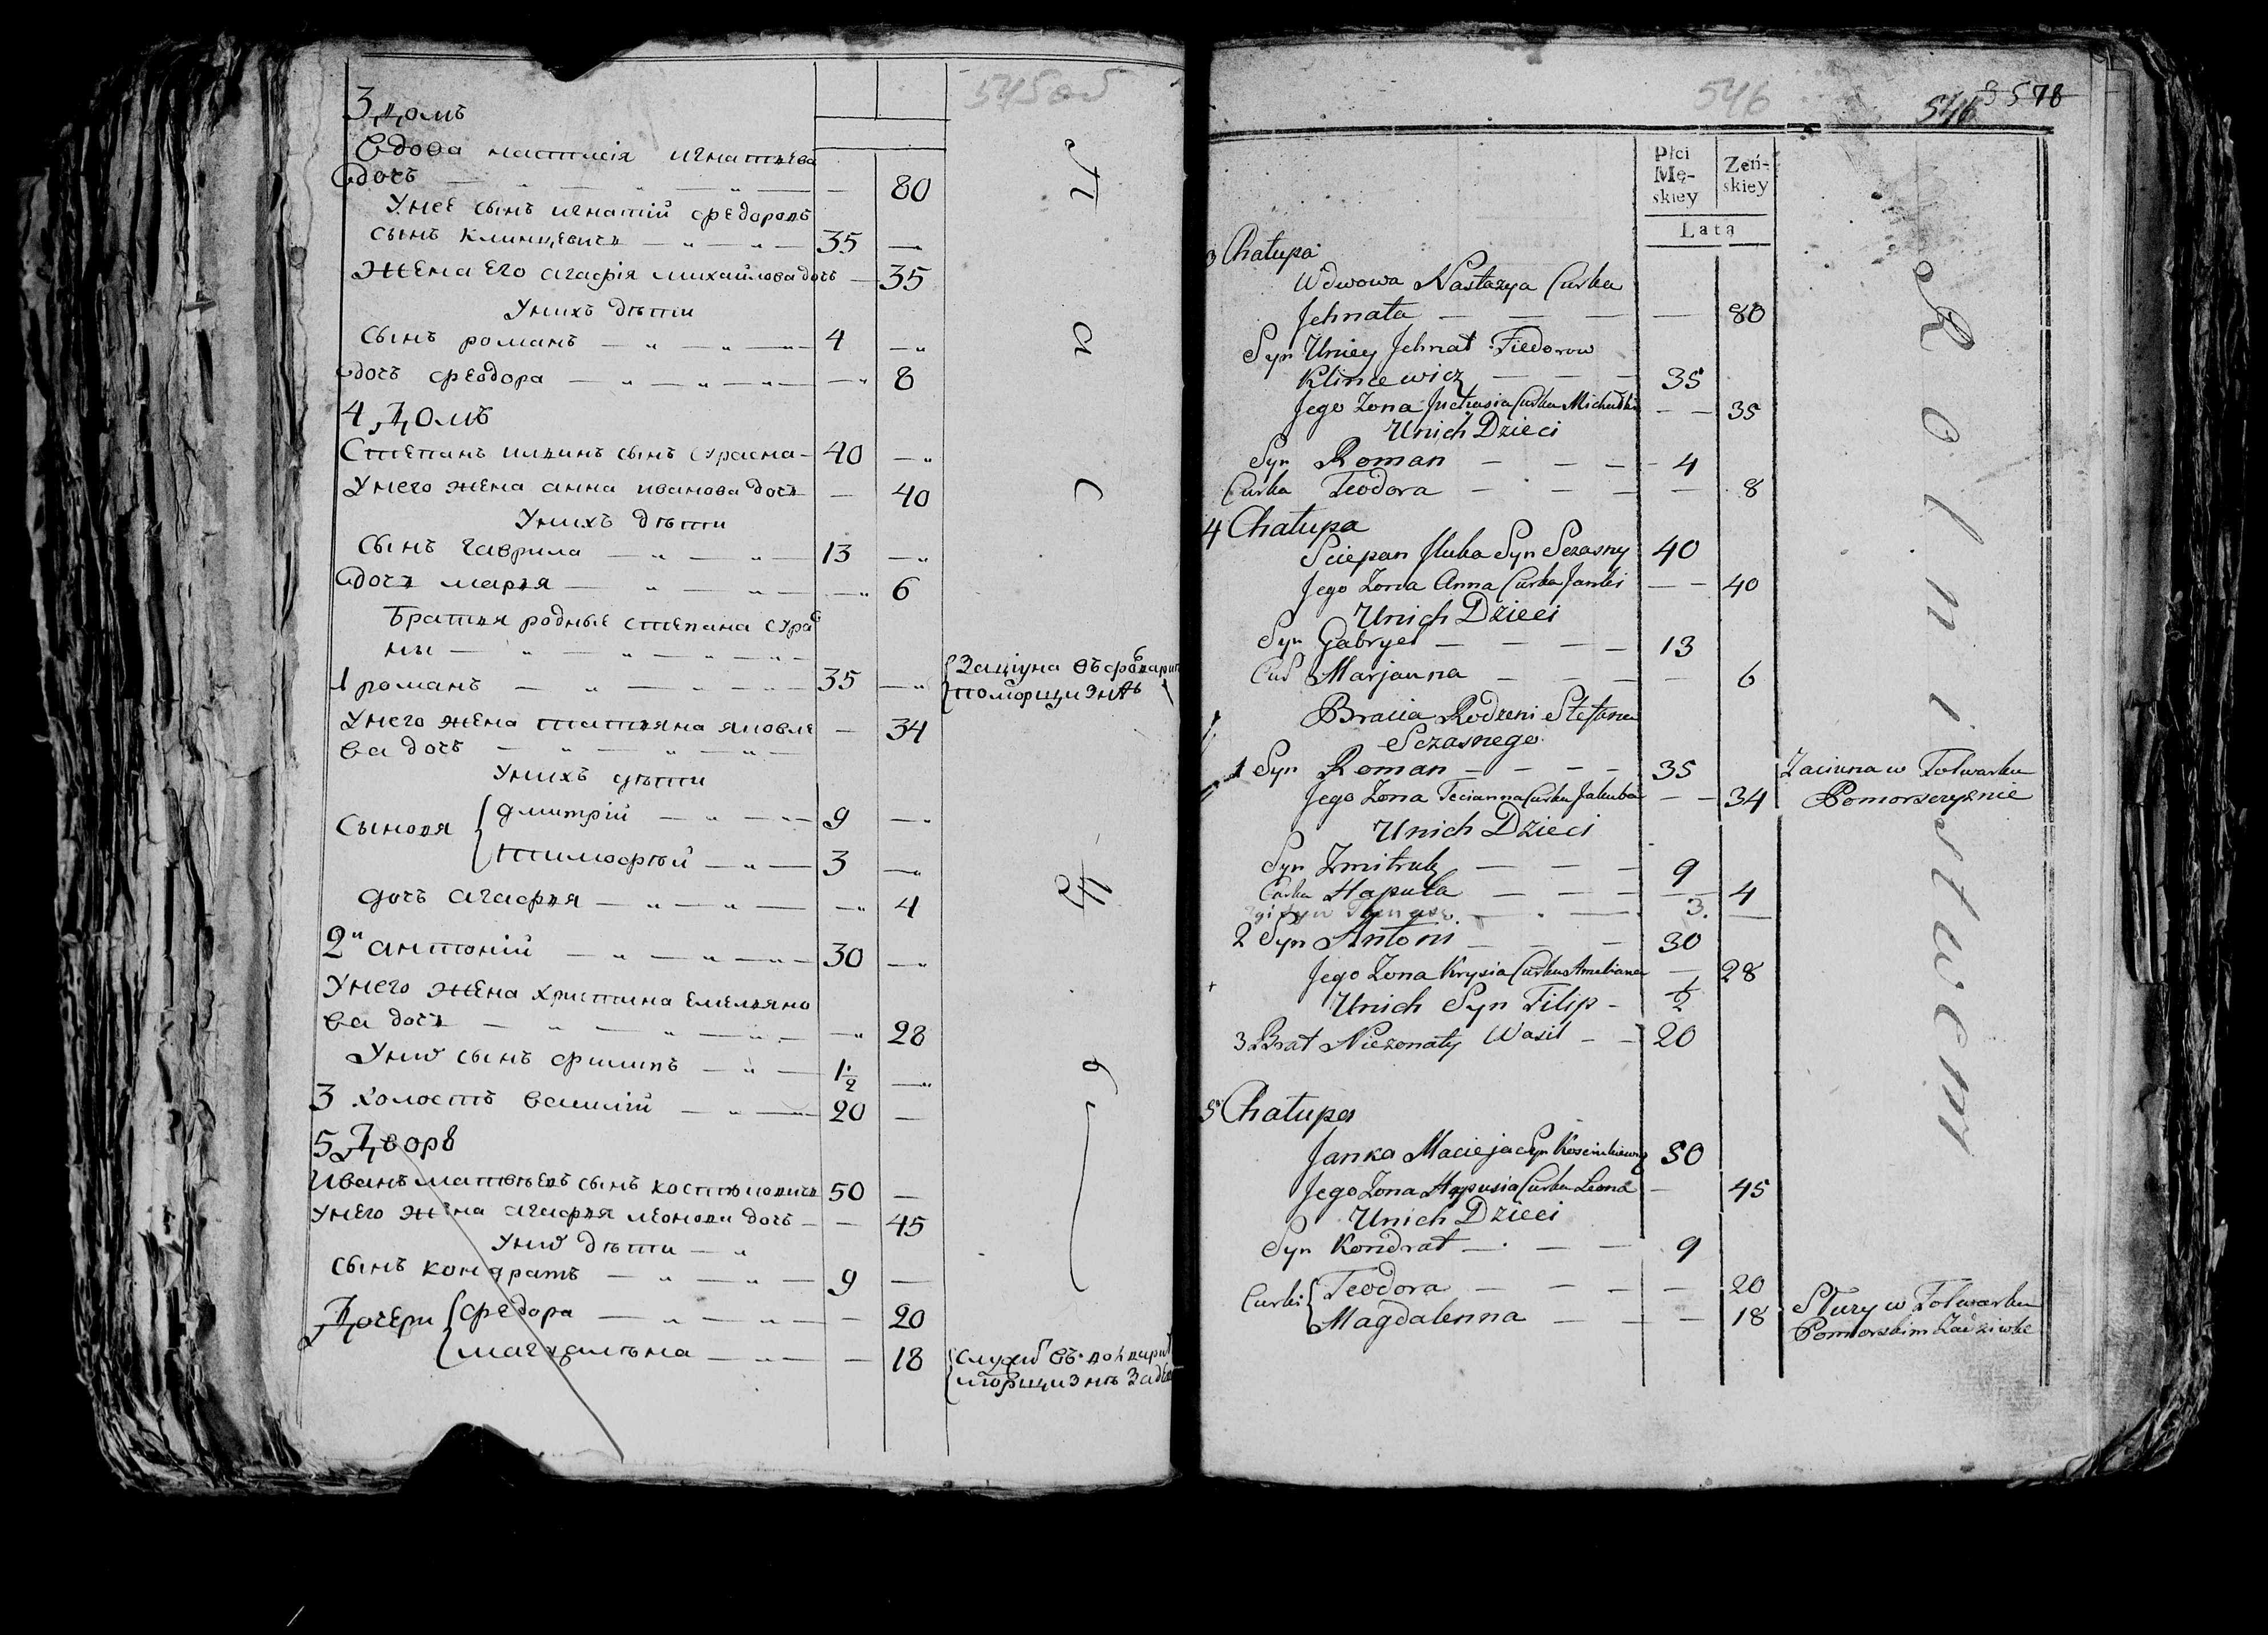 545 об
3 Домъ
Вдова настасія игнатьева
дочь — — — 80
У нее сынъ игнатій федоровъ
сынъ климцевичь — — 35 —
Жена его агафія михайлова дочь — 35
У нихъ дѣти
сынъ романъ — — — 4 —
дочь феодора — — — — 8
4 Домъ
Степанъ ильинъ сынъ 40 —
У него жена анна иванова дочь — 40
У нихъ дѣти
сынъ гаврила — — 13 —
дочь марья — — — 6
Братья родные степана
ны — — —
1 романъ — — — 35 —
У него жена татьяна яковле — 34
ва дочь — — —
У нихъ дѣти
Сыновя { дмитрій — — 9 —
тимофѣй — — 3 —
дочь агафья — — — 4
2й антоній — — — 30 —
У него жена христина емельяно
ва дочь — — — — 28
У них сынъ филипъ — — 1½ —
3 холостъ василій — — 20 —
5 Дворъ
Иванъ матвѣевъ сынъ 50 —
У него жена агафья леонова дочь — — 45
У них дѣти —
сынъ кондратъ — — — 9 —
Дочери { федора — — — — 20
магдалѣна — — — 18
546
546 3578
Płci Mę-skiey
Zeń-skiey
Lata
3 Chałupa
Wdwowa Nastazya Curka
Jehnata — — — — 80
Syn Uniey Jehnat Fiedorow
Klincewicz — — — 35
Jego Zona Curka — — 35
Unich Dzieci
Syn Roman — — — 4
Curka Teodora — — — — 8
4 Chałupa
Sciepan Jluka Syn Sczasny 40
Jego Zona Anna Curka Janki — — 40
Unich Dzieci
Syn Gabryel — — — 13
Cur Marjanna — — — — 6
Bracia Rodzeni Stefana
Sczasnego
1 Syn Roman — — — 35
Zaciuna w Folwarku
Jego Zona Tecianna Curka Jakuba — — 34
Pomorszczyznie
Unich Dzieci
Syn Zmitruk — — — 9
Curka Hapula — — — — 4
3. —
2 Syn Antoni — — — 30
Jego Zona Krysia Curka Ameliana — 28
Unich Syn Filip — ½
3 Brat Niezonaty Wasil — — 20
5 Chałupa
Janka Macieja Syn 50
Jego Zona Hapusia Curka Leona — 45
Unich Dzieci
Syn Kondrat — — — 9
Curki { Teodora — — — — 20
Magdalenna — — — 18
Służy w Folwarku
Pomorskim
Rolnistwem